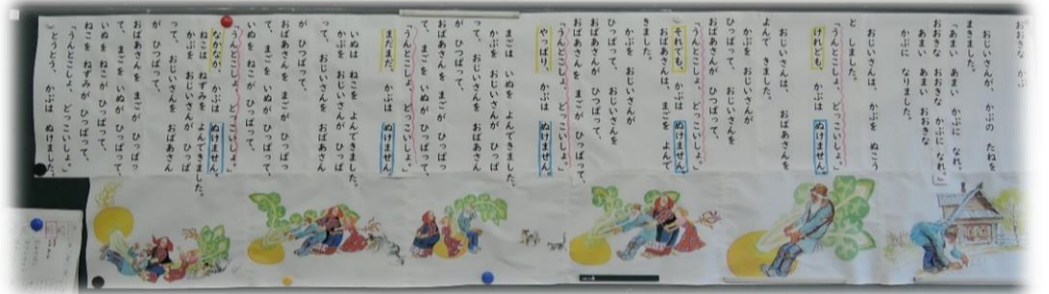 おおきな かぶ
おじいさんが、かぶの たねを
まきました。
「あまい あまい かぶに なれ。
おおきな おおきな かぶに なれ。」
あまい あまい おおきな
かぶに なりました。
おじいさんは、かぶを ぬこう
と しました。
「うんとこしょ、どっこいしょ。」
けれども、かぶは ぬけません。
おじいさんは、おばあさんを
よんで きました。
かぶを おじいさんが
ひっぱって、おじいさんを
おばあさんが ひっぱって、
「うんとこしょ、どっこいしょ。」
それでも、かぶは ぬけません。
おばあさんは、まごを よんで
きました。
かぶを おじいさんが
ひっぱって、おじいさんを
おばあさんが ひっぱって、
おばあさんを まごが ひっぱって、
「うんとこしょ、どっこいしょ。」
やっぱり、かぶは ぬけません。
まごは いぬを よんできました。
かぶを おじいさんが ひっぱ
って、おじいさんを おばあさん
が ひっぱって、
おばあさんを まごが ひっぱっ
て、まごを いぬが ひっぱって、
「うんとこしょ、どっこいしょ。」
まだまだ、かぶは ぬけません。
いぬは ねこを よんできました。
かぶを おじいさんが ひっぱ
って、おじいさんを おばあさん
が ひっぱって、
おばあさんを まごが ひっぱっ
て、まごを いぬが ひっぱって、
いぬを ねこが ひっぱって、
「うんとこしょ、どっこいしょ。」
なかなか、かぶは ぬけません。
ねこは ねずみを よんできました。
かぶを おじいさんが ひっぱ
って、おじいさんを おばあさん
が ひっぱって、
おばあさんを まごが ひっぱっ
て、まごを いぬが ひっぱって、
いぬを ねこが ひっぱって、
ねこを ねずみが ひっぱって、
「うんとこしょ、どっこいしょ。」
とうとう、かぶは ぬけました。